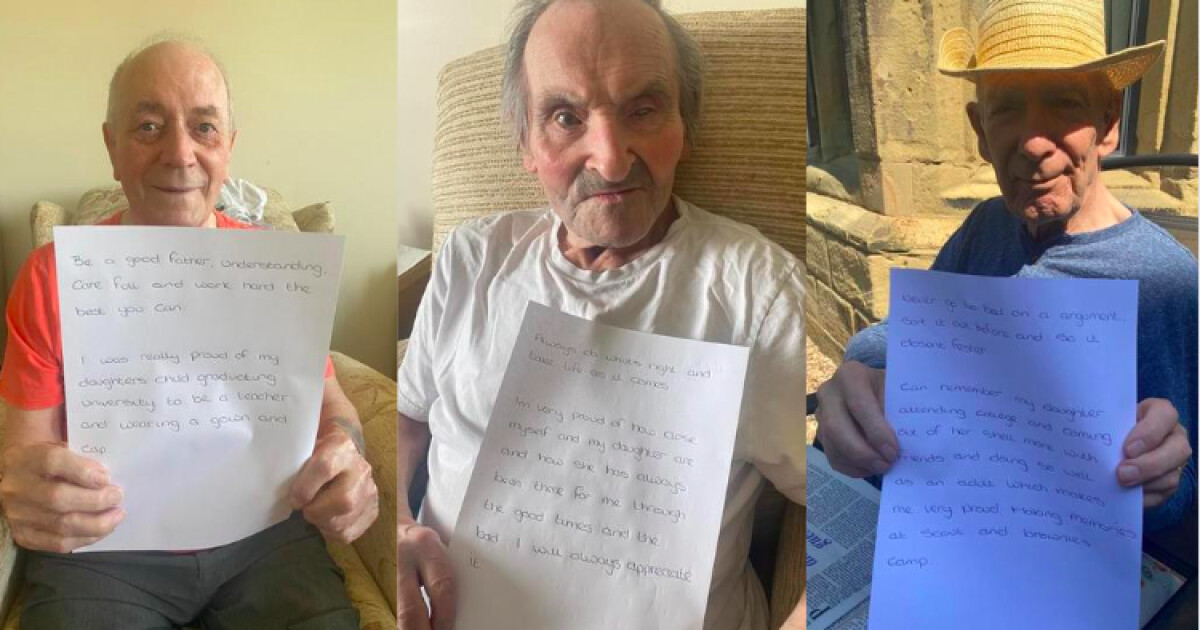 Be a good father, understanding,
Care full and work hard the
best you can.
I was really proud of my
daughters child graduating
university to be a teacher
and wearing a gown and
cap.
Always do whats right and
take life as it comes
Im very proud of how close
myself and my daughter are
and how she has always
been there for me through
the good times and the
bad I will always appreciate
it
Never go to bed on a argument,
Sort it out before and so it
doesnt fester
Can remember my daughter
attending college and coming
out of her shell more with
friends and doing so well
as an adult which makes
me very proud. Making memories
at Scout and brownies
camp